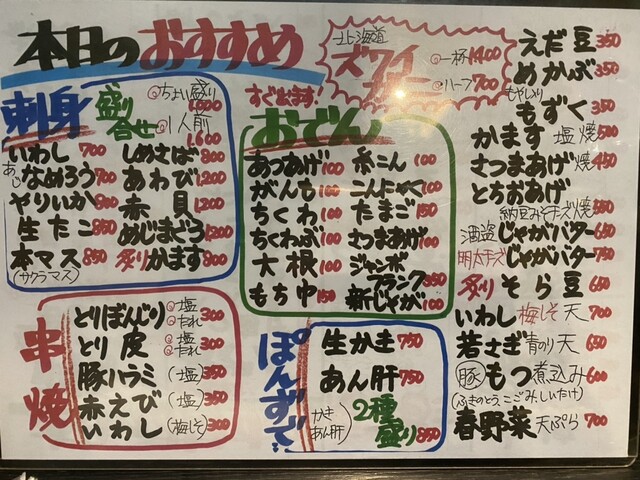 本日のおすすめ
北海道
ズワイガニ
◎一杯1400
◎ハーフ700
すぐ出ます!
刺身
盛り合せ
◎ちょい盛り 1,000
◎1人前 1,600
いわし 700
あじなめろう 700
やりいか 800
生たこ 850
本マス 850
(サクラマス)
しめさば 800
あわび 1,200
赤貝 1,200
めじまぐろ 1,200
炙りかます 800
おでん
あつあげ 100
がんも 100
ちくわ 100
ちくわぶ 100
大根 100
もち巾 150
糸こん 100
こんにゃく 100
たまご 150
さつまあげ 100
ジャンボフランク 350
新じゃが 100
串焼
とりぼんじり ◎塩 ◎たれ 300
とり皮 ◎塩 ◎たれ 300
豚ハラミ (塩) 350
赤えび (塩) 350
いわし (梅しそ) 300
ぽんずで
生かき 750
あん肝 750
かき あん肝) 2種盛り 850
えだ豆 350
めかぶ 350
もずく 350
かます 塩焼 500
さつまあげ 焼 450
とちおあげ
納豆みそチーズ焼
酒盗 じゃがバター 650
明太チーズ じゃがバター 750
炙りそら豆 650
いわし 梅しそ天 700
若さぎ 青のり天 650
(豚)もつ煮込み 600
(ふきのとう、こごみ、しいたけ)
春野菜 天ぷら 700